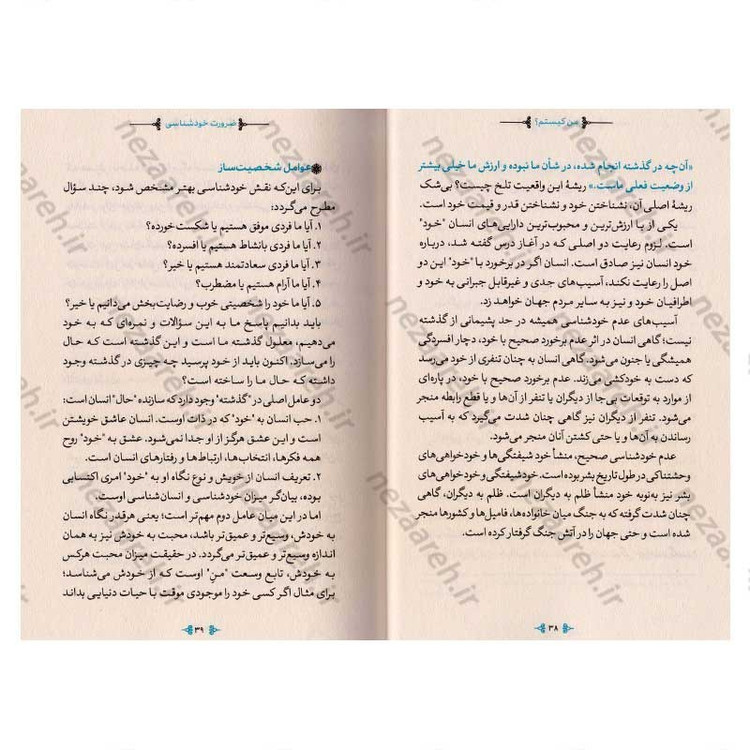 من کیستم؟
«آن‌چه در گذشته انجام شده، در شأن ما نبوده و ارزش ما خیلی بیشتر
از وضعیت فعلی ماست.» ریشهٔ این واقعیت تلخ چیست؟ بی‌شک
ریشهٔ اصلی آن، نشناختن خود و نشناختن قدر و قیمت خود است.
یکی از با ارزش‌ترین و محبوب‌ترین دارایی‌های انسان "خود"
است. لزوم رعایت دو اصلی که در آغاز درس گفته شد، درباره
خود انسان نیز صادق است. انسان اگر در برخورد با "خود" این دو
اصل را رعایت نکند، آسیب‌های جدی و غیرقابل جبرانی به خود و
اطرافیان خود و نیز به سایر مردم جهان خواهد زد.
آسیب‌های عدم خودشناسی همیشه در حد پشیمانی از گذشته
نیست؛ گاهی انسان در اثر عدم برخورد صحیح با خود، دچار افسردگی
همیشگی یا جنون می‌شود. گاهی انسان به چنان تنفری از خود می‌رسد
که دست به خودکشی می‌زند. عدم برخورد صحیح با خود، در پاره‌ای
از موارد به توقعات بی‌جا از دیگران یا تنفر از آن‌ها و یا قطع رابطه منجر
می‌شود. تنفر از دیگران نیز گاهی چنان شدت می‌گیرد که به آسیب
رساندن به آن‌ها و یا حتی کشتن آنان منجر می‌شود.
عدم خودشناسی صحیح، منشأ خود شیفتگی‌ها و خودخواهی‌های
وحشتناکی در طول تاریخ بشر بوده است. خودشیفتگی و خودخواهی‌های
بشر نیز به‌نوبه خود منشأ ظلم به دیگران است. ظلم به دیگران، گاهی
چنان شدت گرفته که به جنگ میان خانواده‌ها، فامیل‌ها و کشورها منجر
شده است و حتی جهان را در آتش جنگ گرفتار کرده است.
۳۸
ضرورت خودشناسی
عوامل شخصیت‌ساز
برای این‌که نقش خودشناسی بهتر مشخص شود، چند سؤال
مطرح می‌گردد:
۱. آیا ما فردی موفق هستیم یا شکست خورده؟
۲. آیا ما فردی بانشاط هستیم یا افسرده؟
۳. آیا ما فردی سعادتمند هستیم یا خیر؟
۴. آیا ما آرام هستیم یا مضطرب؟
۵. آیا ما خود را شخصیتی خوب و رضایت‌بخش می‌دانیم یا خیر؟
باید بدانیم پاسخ ما به این سؤالات و نمره‌ای که به خود
می‌دهیم، معلول گذشته ما است و این گذشته است که حال
ما را می‌سازد. اکنون باید از خود پرسید چه چیزی در گذشته وجود
داشته که حال ما را ساخته است؟
دو عامل اصلی در "گذشته" وجود دارد که سازنده "حال" انسان است:
۱. حب انسان به "خود" که در ذات اوست. انسان عاشق خویشتن
است و این عشق هرگز از او جدا نمی‌شود. عشق به "خود" روح
همه فکرها، انتخاب‌ها، ارتباط‌ها و رفتارهای انسان است.
۲. تعریف انسان از خویش و نوع نگاه او به "خود" امری اکتسابی
بوده، بیان‌گر میزان خودشناسی و انسان‌شناسی اوست.
اما در این میان عامل دوم مهم‌تر است؛ یعنی هرقدر نگاه انسان
به خودش، وسیع‌تر و عمیق‌تر باشد، محبت به خودش نیز به همان
اندازه وسیع‌تر و عمیق‌تر می‌گردد. در حقیقت میزان محبت هرکس
به خودش، تابع وسعت "منِ" اوست که از خودش می‌شناسد؛
برای مثال اگر کسی خود را موجودی موقت با حیات دنیایی بداند
۳۹
nezaareh.ir